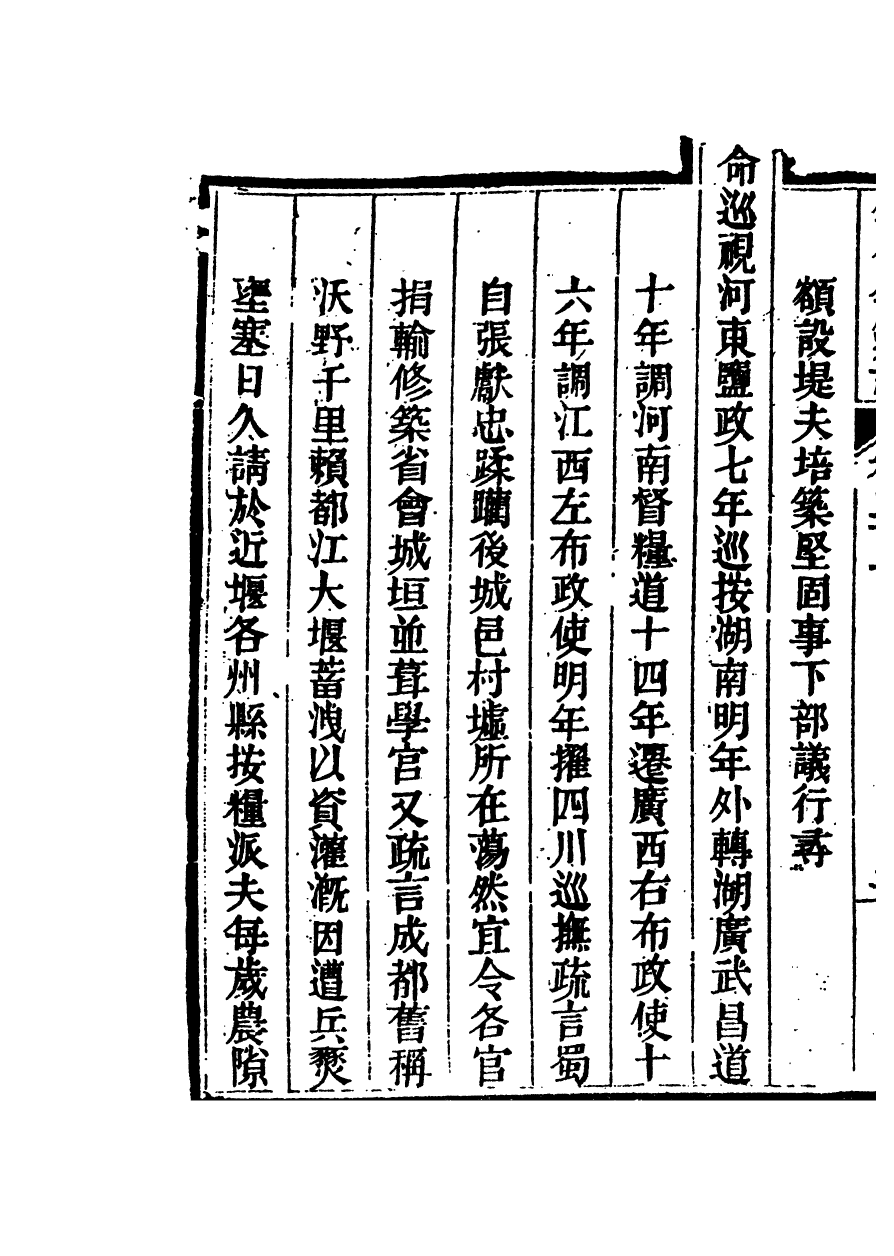 額設堤夫培築堅固事下部議行尋
命巡視河東鹽政七年巡按湖南明年外轉湖廣武昌道
十年調河南督糧道十四年遷廣西右布政使十
六年調江西左布政使明年擢四川巡撫疏言蜀
自張獻忠蹂躪後城邑村墟所在蕩然宜令各官
捐輸修築省會城垣並葺學宮又疏言成都舊稱
沃野千里賴都江大堰蓄洩以資灌漑因遭兵燹
堙塞日久請於近堰各州縣按糧派夫每歲農隙